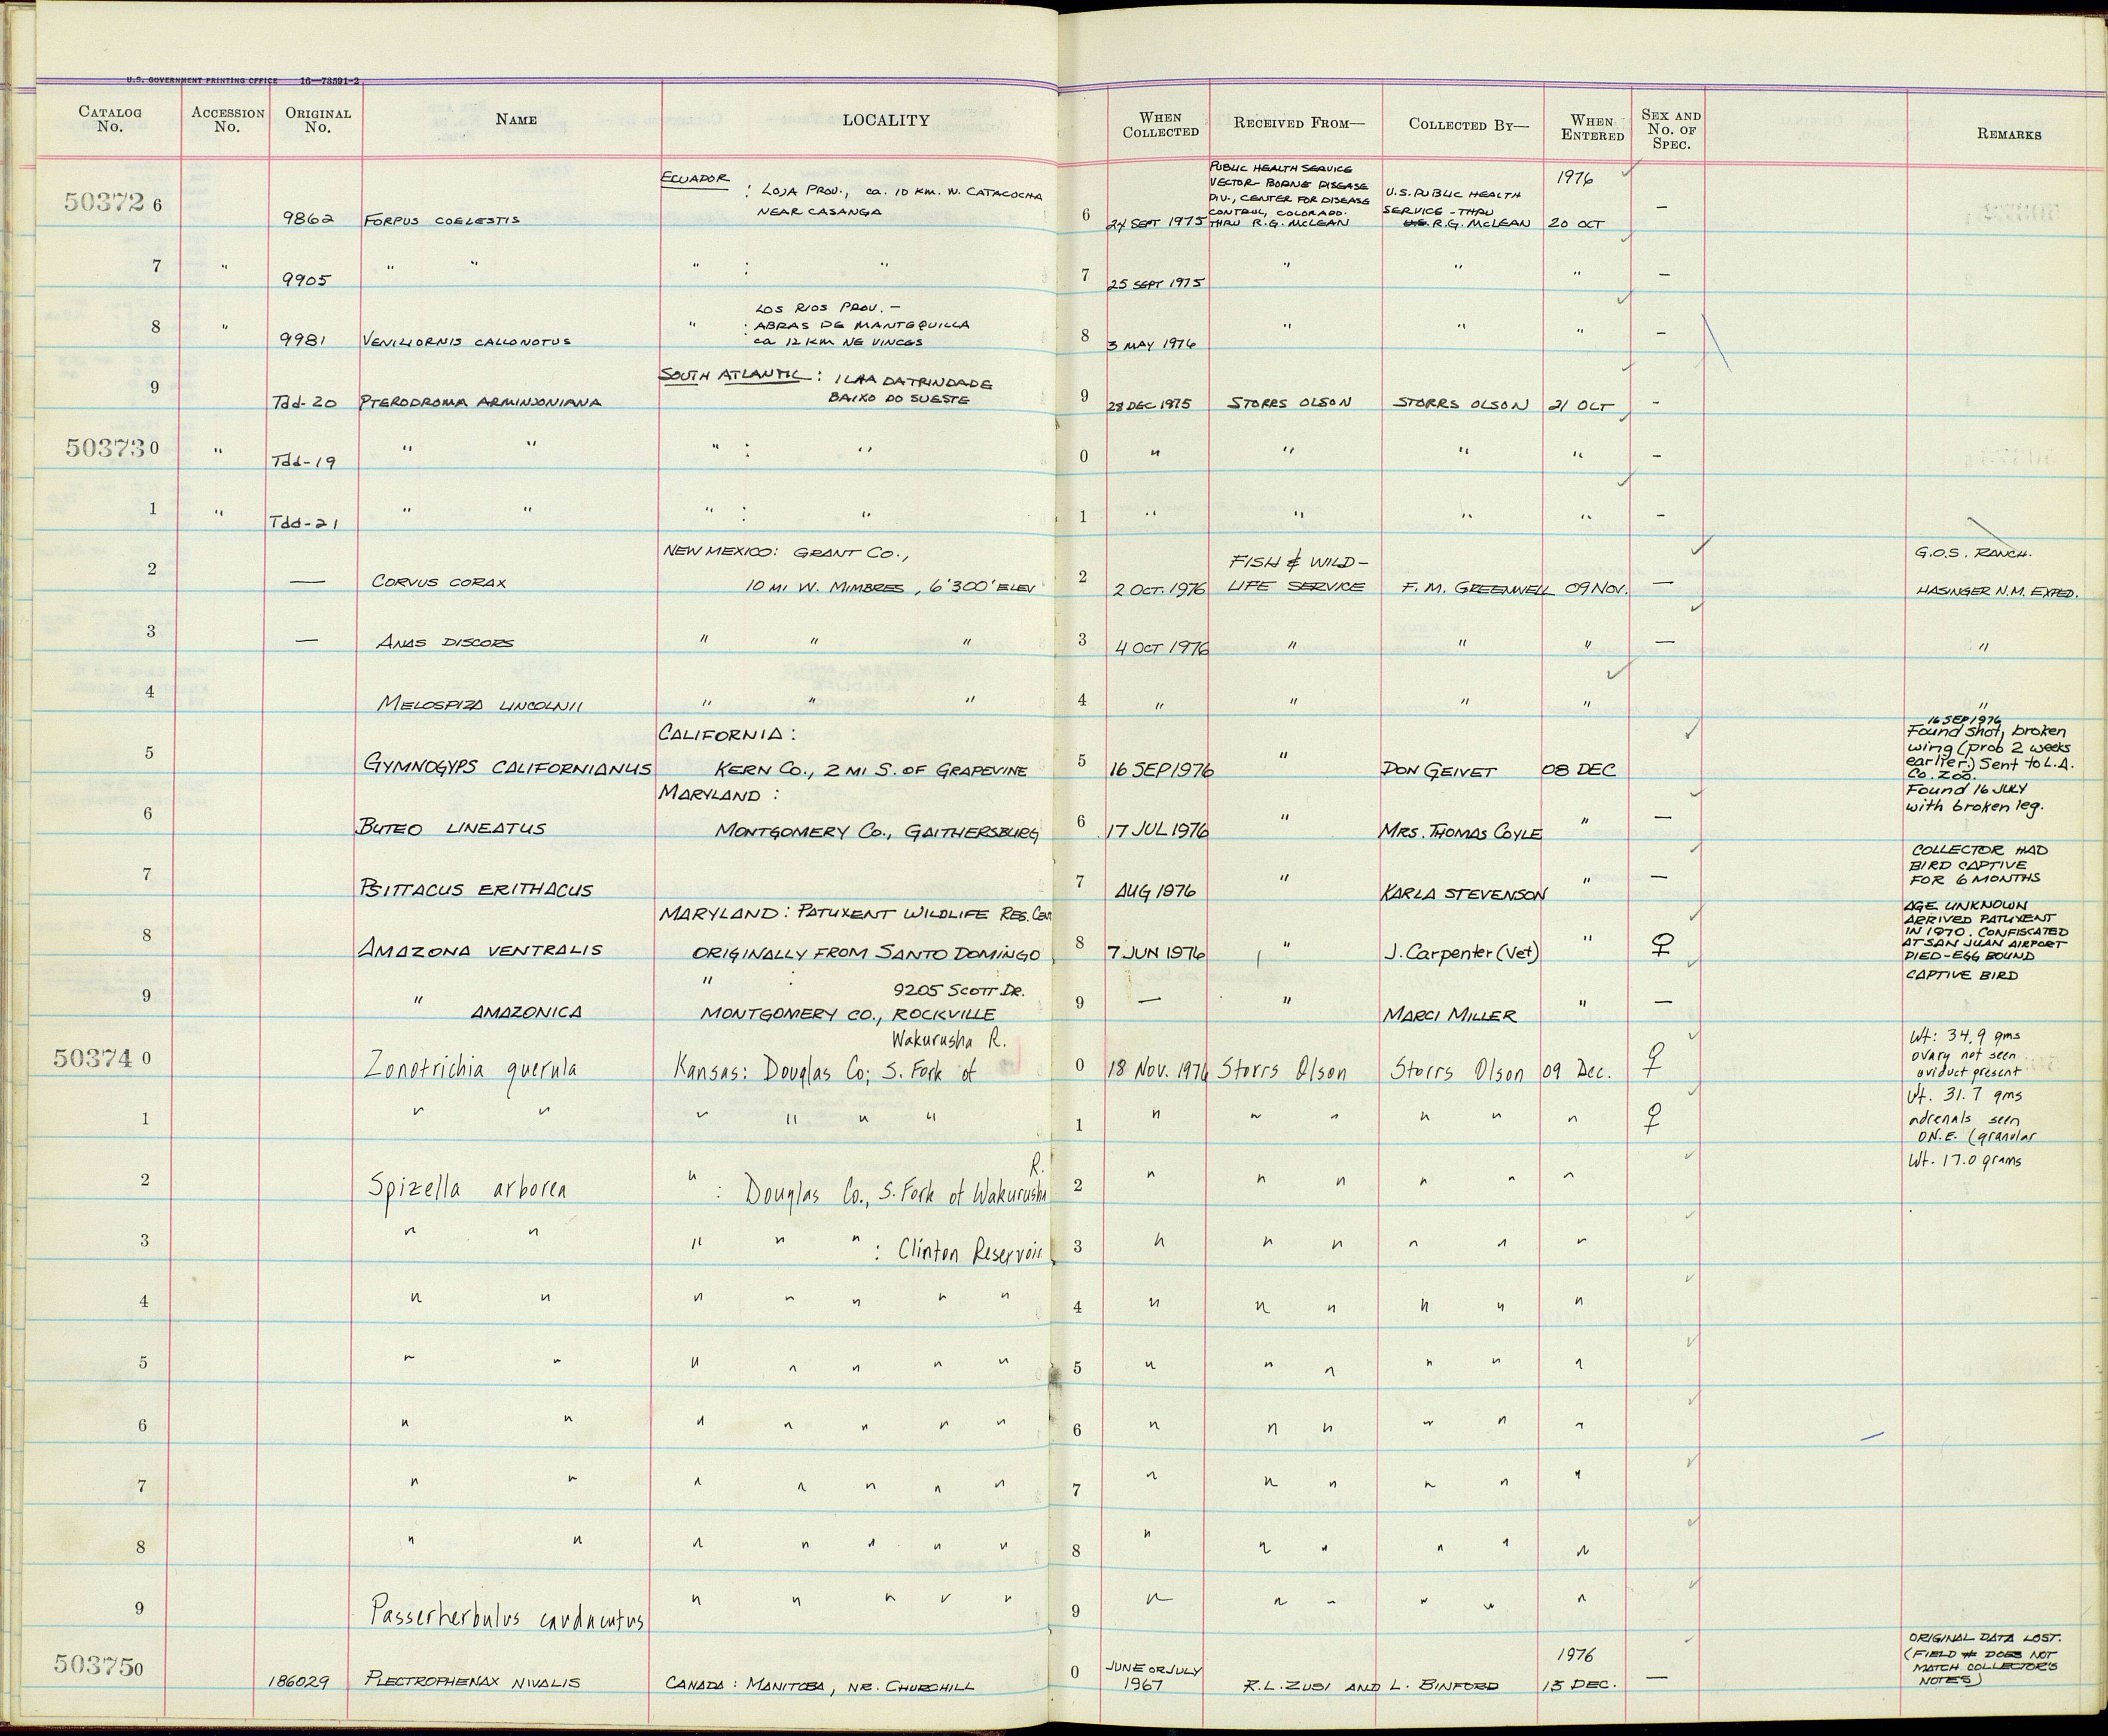 U.S. GOVERNMENT PRINTING OFFICE 16—73591-2
CATALOG No. ACCESSION No. ORIGINAL No. NAME LOCALITY WHEN COLLECTED RECEIVED FROM— COLLECTED BY— WHEN ENTERED SEX AND No. OF SPEC. REMARKS
503726 9862 FORPUS COELESTIS ECUADOR : LOJA PROV., ca. 10 KM. W. CATACOCHA NEAR CASANGA 6 24 SEPT 1975 PUBLIC HEALTH SERVICE VECTOR-BORNE DISEASE DIV., CENTER FOR DISEASE CONTROL, COLORADO. THRU R.G. MCLEAN U.S. PUBLIC HEALTH SERVICE - THRU U.S. R.G. MCLEAN 1976 20 OCT —
7 " 9905 " " " : " 7 25 SEPT 1975 " " " —
8 " 9981 VENILIORNIS CALLONOTUS " : LOS RIOS PROV. — ABRAS DE MANTEQUILLA ca 12 KM NE VINCES 8 3 MAY 1976 " " " —
9 Tdd-20 PTERODROMA ARMINJONIANA SOUTH ATLANTIC : ILHA DA TRINDADE BAIXO DO SUESTE 9 28 DEC 1975 STORRS OLSON STORRS OLSON 21 OCT —
503730 " Tdd-19 " " " : " 0 " " " " —
1 " Tdd-21 " " " : " 1 " " " " —
2 — CORVUS CORAX NEW MEXICO: GRANT CO., 10 MI W. MIMBRES, 6'300' ELEV 2 2 OCT. 1976 FISH & WILD-LIFE SERVICE F. M. GREENWELL 09 NOV. — G.O.S. RANCH. HASINGER N.M. EXPED.
3 — ANAS DISCORS " " " 3 4 OCT 1976 " " " — "
4 MELOSPIZA LINCOLNII " " " 4 " " " " "
5 GYMNOGYPS CALIFORNIANUS CALIFORNIA : KERN CO., 2 MI S. OF GRAPEVINE 5 16 SEP 1976 " DON GEIVET 08 DEC 16 SEP 1976 Found shot, broken wing (prob 2 weeks earlier.) Sent to L.A. Co. Zoo.
6 BUTEO LINEATUS MARYLAND : MONTGOMERY CO., GAITHERSBURG 6 17 JUL 1976 " MRS. THOMAS COYLE " — Found 16 JULY with broken leg.
7 PSITTACUS ERITHACUS 7 AUG 1976 " KARLA STEVENSON " — COLLECTOR HAD BIRD CAPTIVE FOR 6 MONTHS
8 AMAZONA VENTRALIS MARYLAND : PATUXENT WILDLIFE RES. CEN ORIGINALLY FROM SANTO DOMINGO 8 7 JUN 1976 " J. Carpenter (Vet) " ♀ AGE UNKNOWN ARRIVED PATUXENT IN 1970. CONFISCATED AT SAN JUAN AIRPORT DIED-EGG BOUND
9 " AMAZONICA " : 9205 SCOTT DR. MONTGOMERY CO., ROCKVILLE 9 — " MARCI MILLER " — CAPTIVE BIRD
503740 Zonotrichia querula Kansas: Douglas Co; S. Fork of Wakurusha R. 0 18 Nov. 1976 Storrs Olson Storrs Olson 09 Dec. ♀ Wt: 34.9 gms ovary not seen oviduct present
1 " " " " " " 1 " " " " " " ♀ Wt. 31.7 gms adrenals seen O.N.E. (granular
2 Spizella arborea " : Douglas Co., S. Fork of Wakurusha R. 2 " " " " " " Wt. 17.0 grams
3 " " " " " : Clinton Reservoir 3 " " " " " "
4 " " " " " " " 4 " " " " " "
5 " " " " " " " 5 " " " " " "
6 " " " " " " " 6 " " " " " "
7 " " " " " " " 7 " " " " " "
8 " " " " " " " 8 " " " " " "
9 Passerherbulus caudacutus " " " " " 9 " " " " " "
503750 186029 PLECTROPHENAX NIVALIS CANADA : MANITOBA, NR. CHURCHILL 0 JUNE OR JULY 1967 R.L. ZUSI AND L. BINFORD 1976 13 DEC. — ORIGINAL DATA LOST. (FIELD # DOES NOT MATCH COLLECTOR'S NOTES)